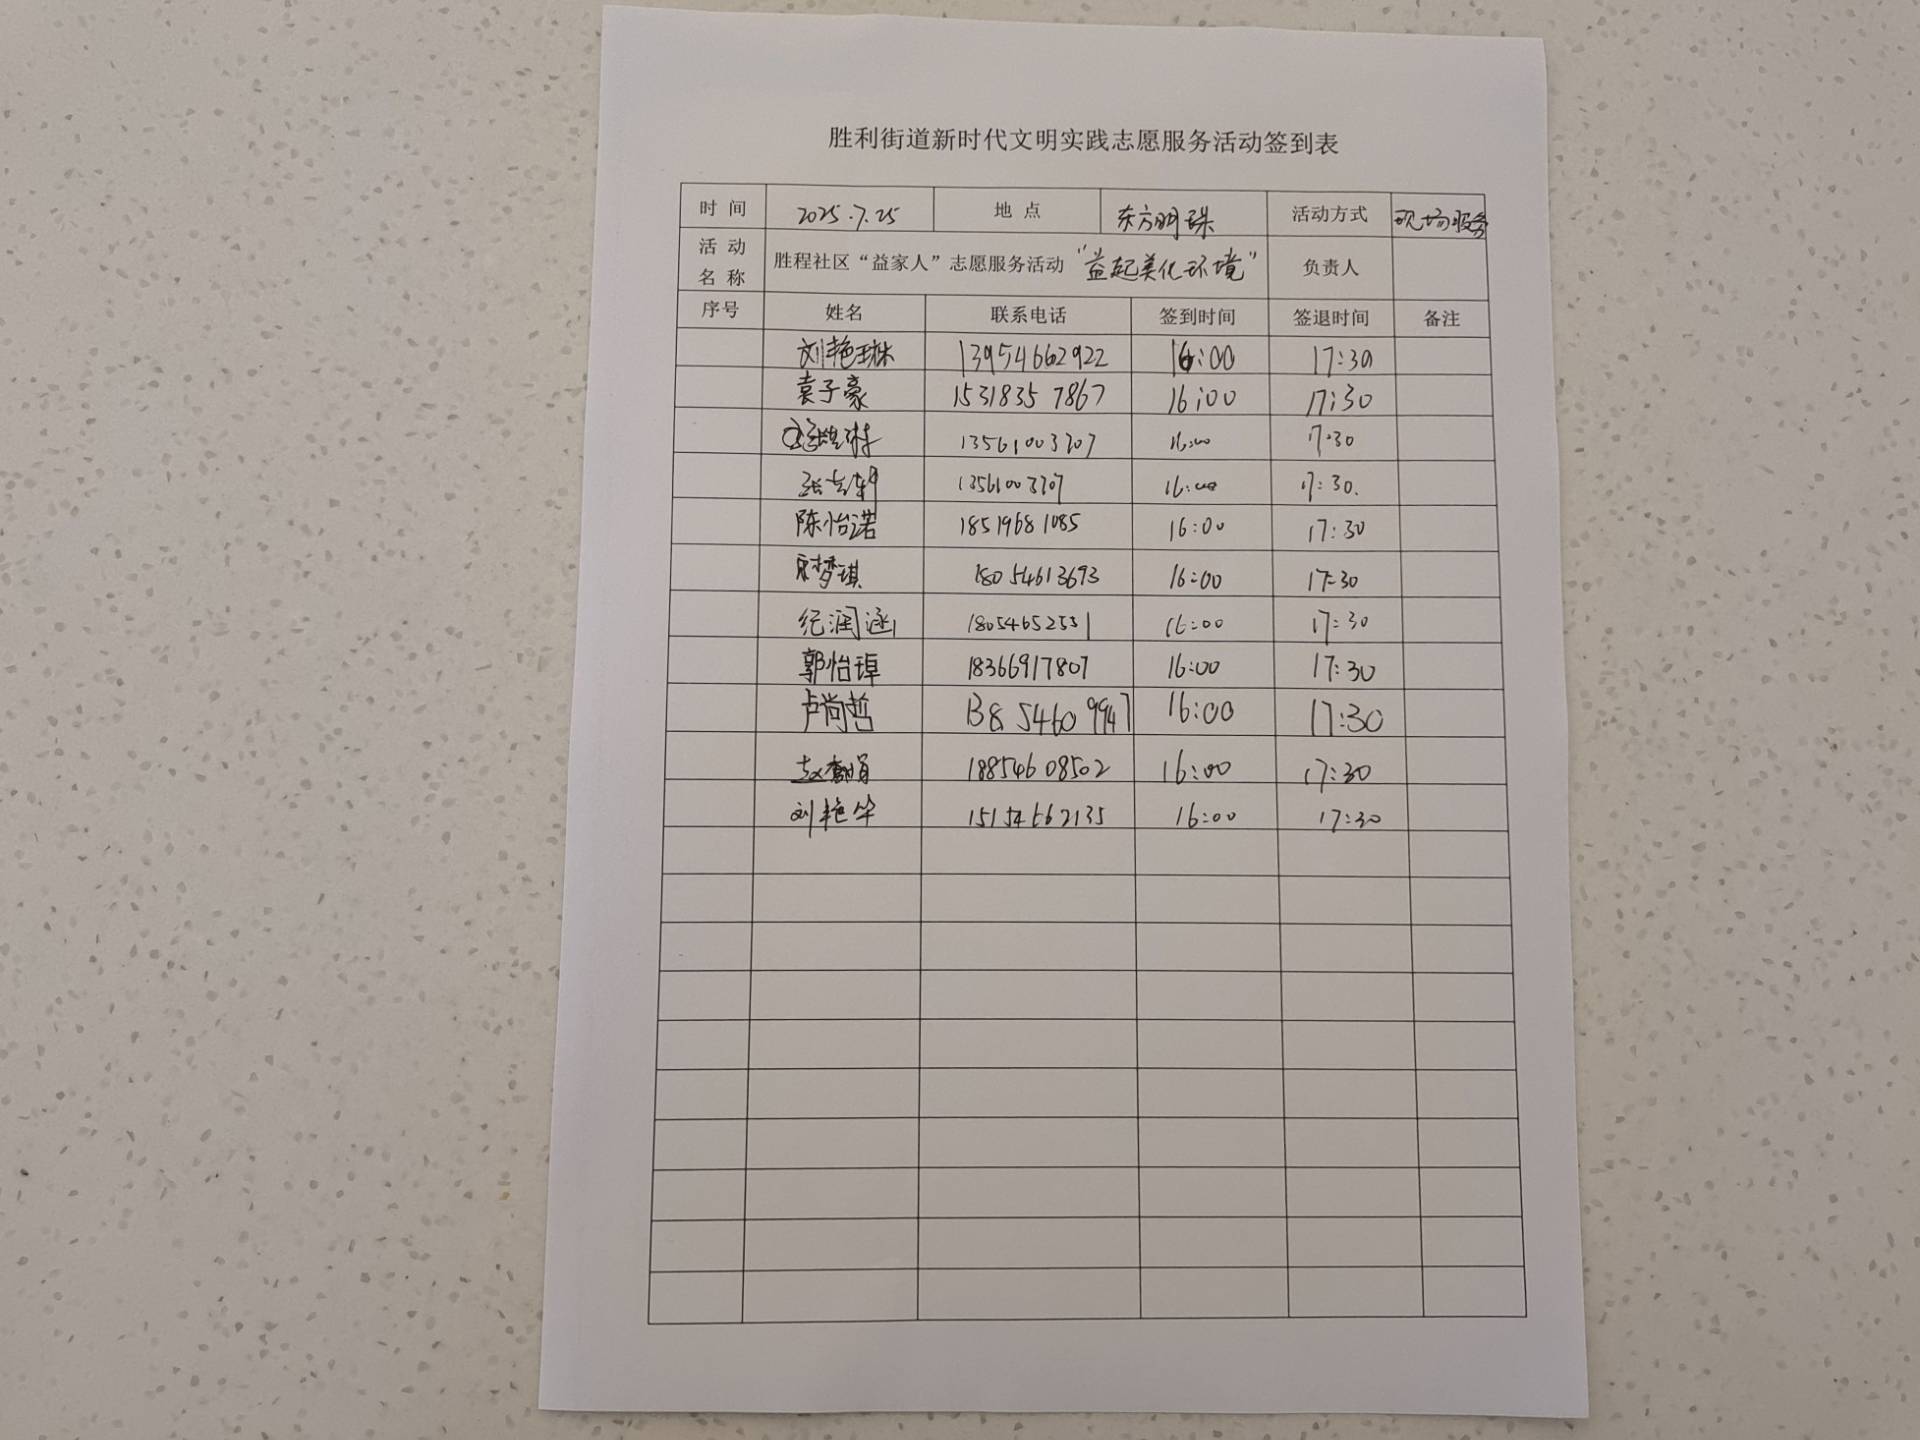 胜利街道新时代文明实践志愿服务活动签到表
时 间 2025.7.25 地 点 东方明珠 活动方式 现场服务
活 动 名 称 胜程社区“益家人”志愿服务活动 “益起美化环境” 负责人
序号 姓名 联系电话 签到时间 签退时间 备注
刘艳琳 13954662922 16:00 17:30
袁子豪 15318357867 16:00 17:30
13561003707 16:00 17:30
16:00 17:30.
陈怡诺 18519681085 16:00 17:30
宋梦琪 18054613693 16:00 17:30
纪润涵 18054652551 16:00 17:30
郭怡璋 18366917807 16:00 17:30
卢尚哲 13854609947 16:00 17:30
赵 18854608502 16:00 17:30
刘艳华 15154662135 16:00 17:30